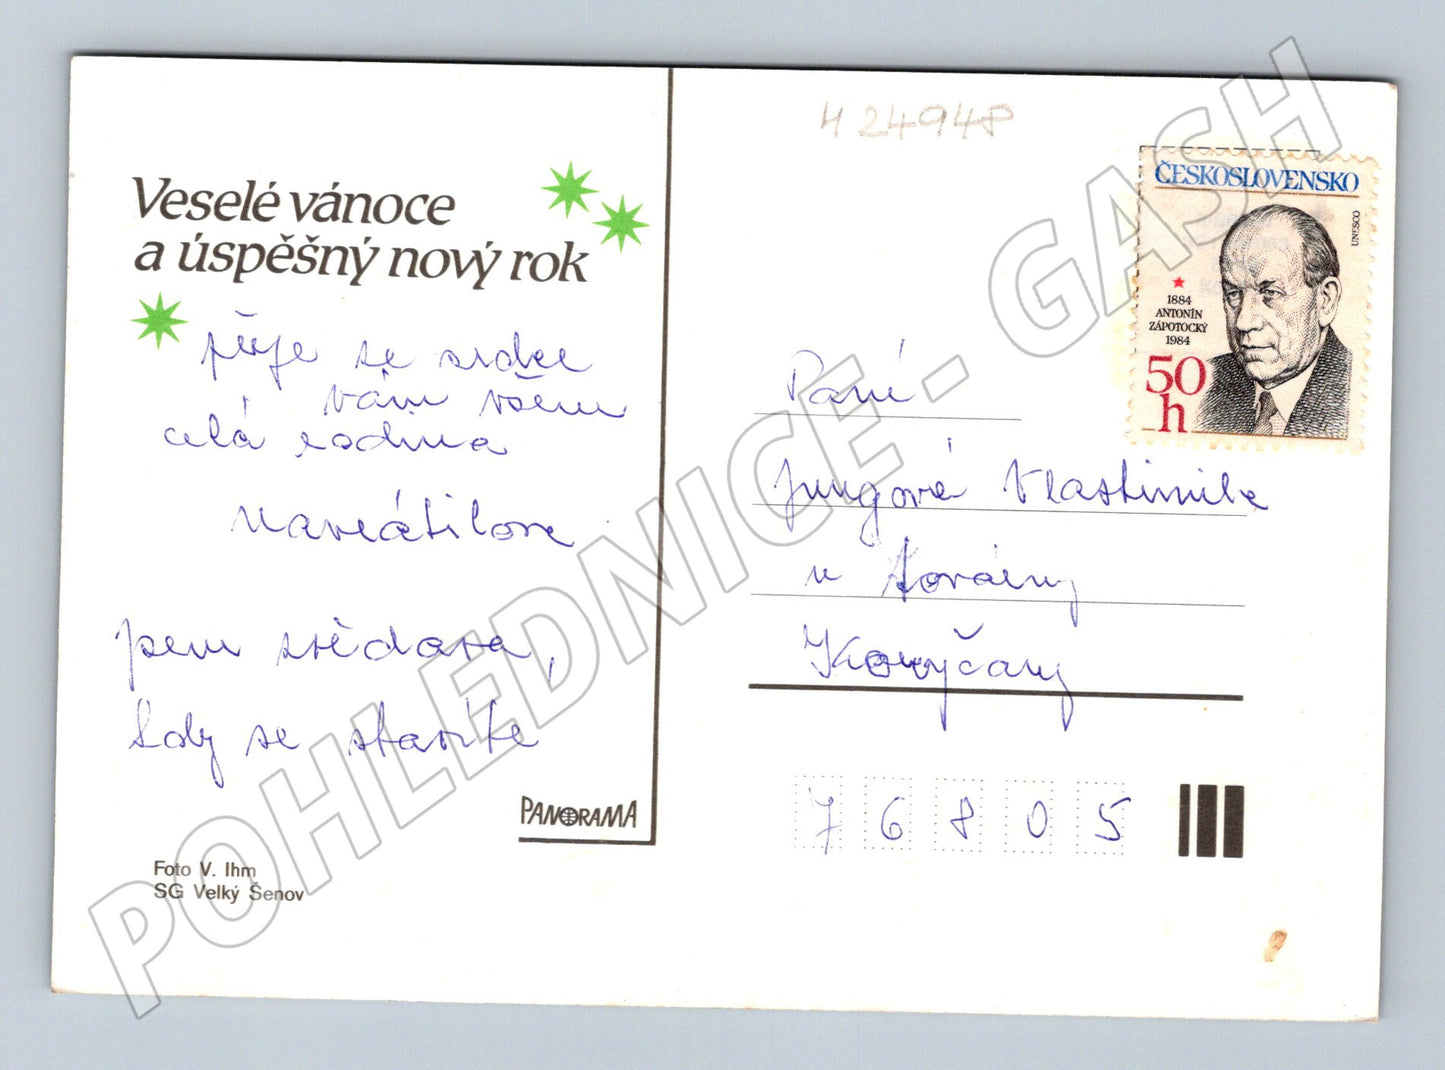 Veselé vánoce
a úspěšný nový rok
přeje ze srdce
vám všem
celá rodina
Navrátilova
jsem zvědava,
kdy se stavíte
PANORAMA
Foto V. Ihm
SG Velký Šenov
H 24948
ČESKOSLOVENSKO
UNESCO
1884
ANTONÍN
ZÁPOTOCKÝ
1984
50
h
Paní
Jungová Vlastimila
u Továrny
Koryčany
76805
POHLEDNICE - GASH